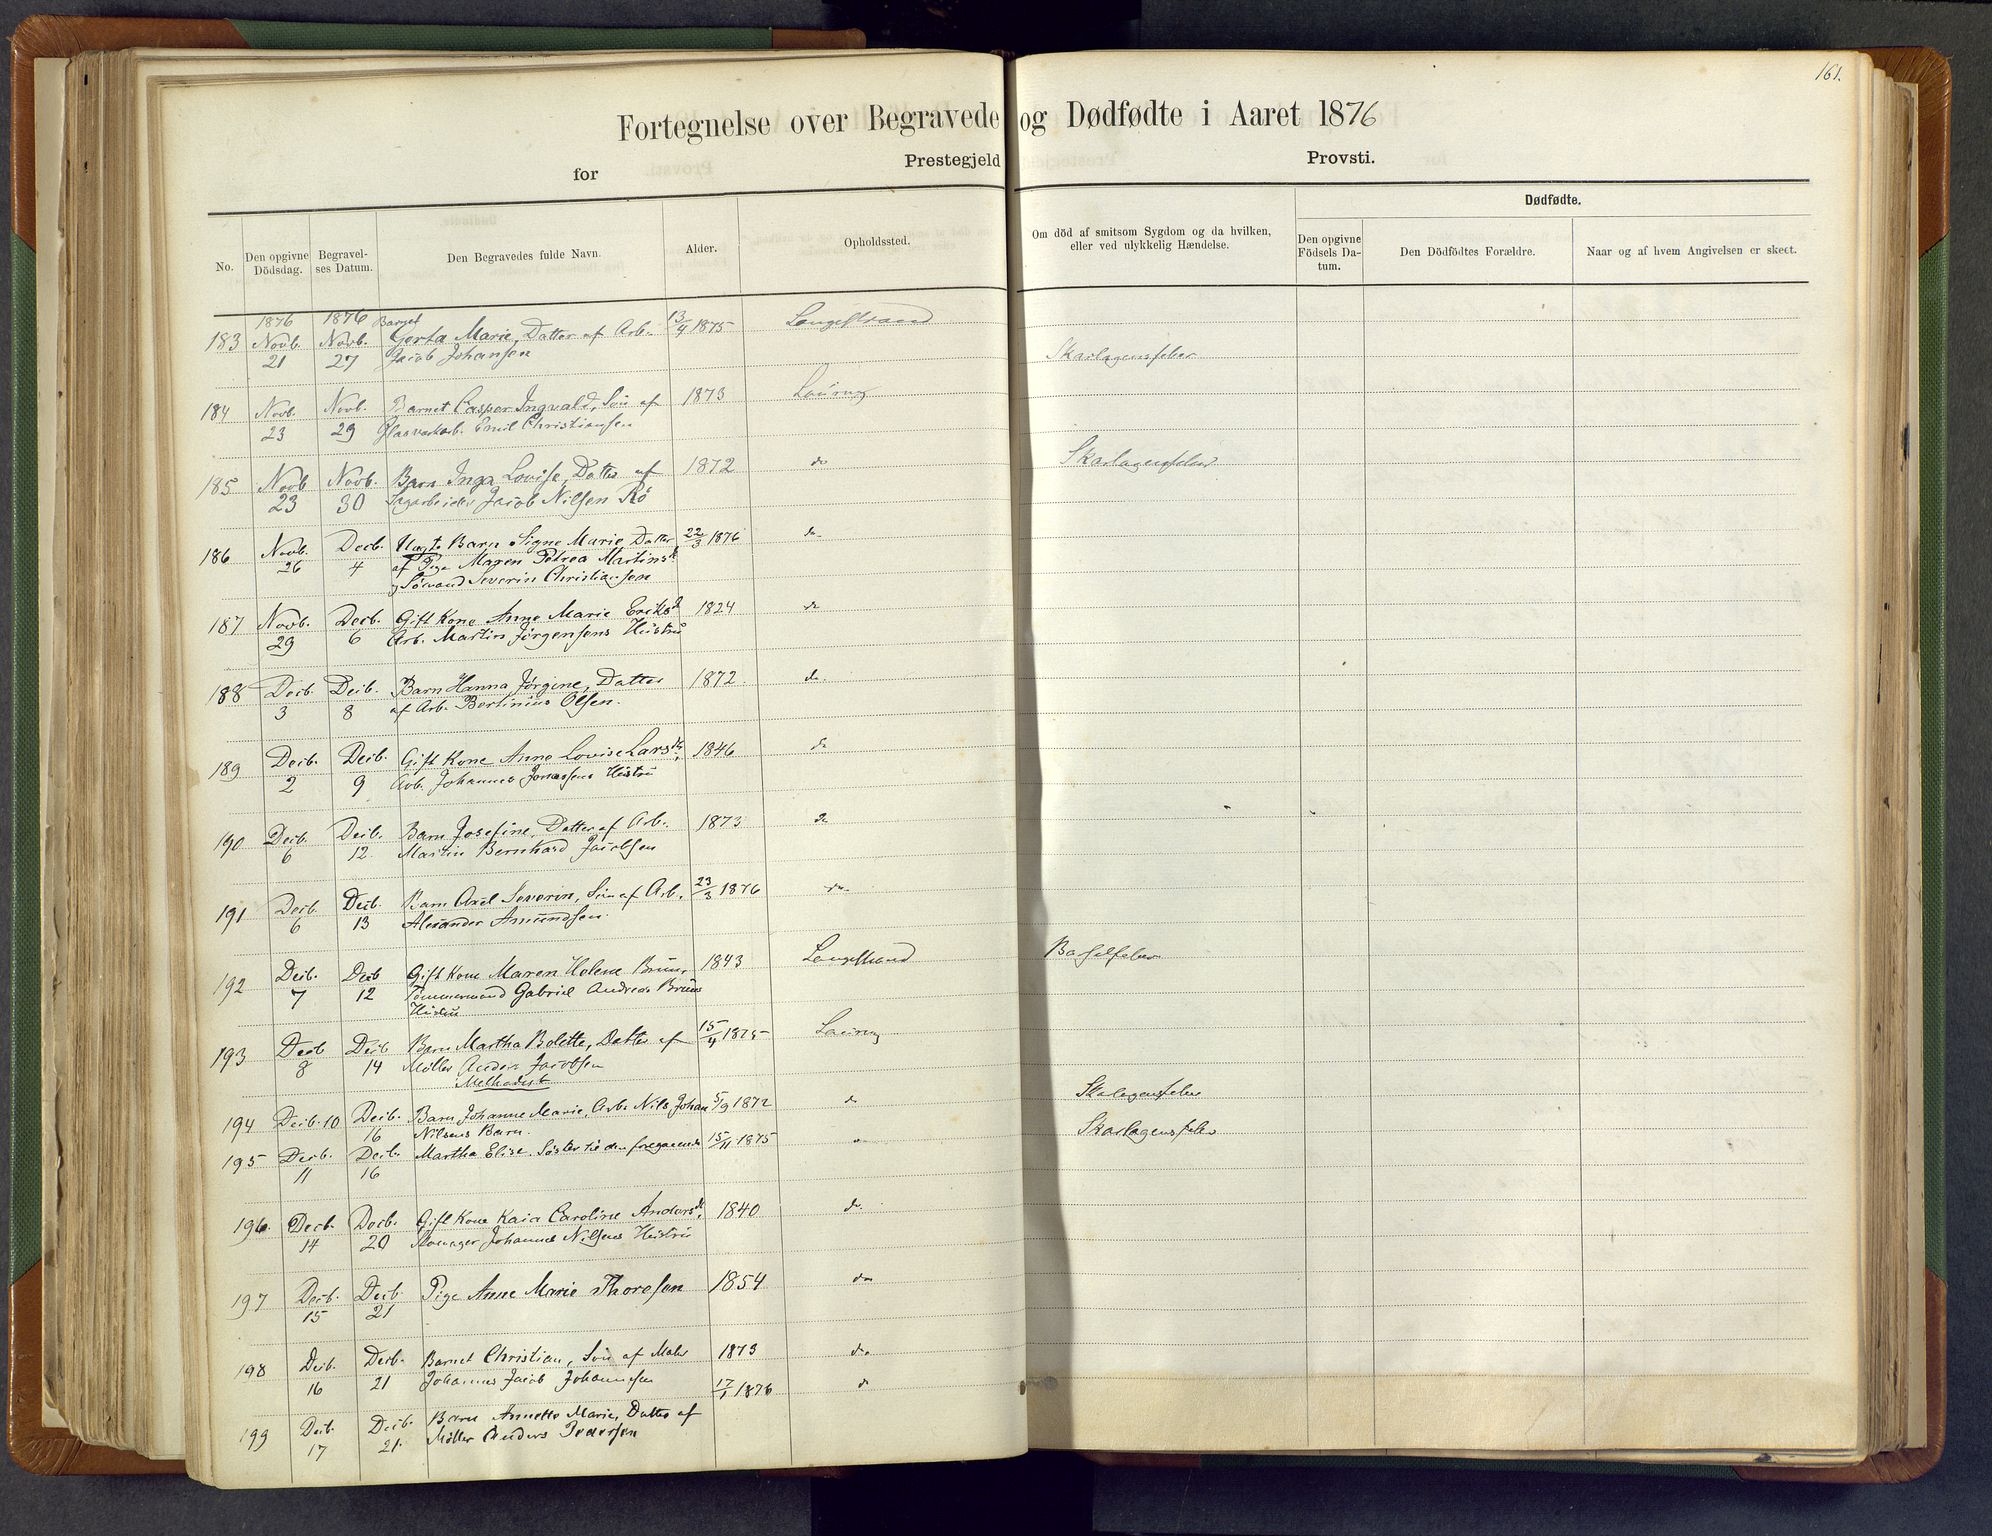 161.
Fortegnelse over Begravede og Dødfødte i Aaret 1876
for Prestegjeld Provsti.
No. Den opgivne Dödsdag. Begravelses Datum. Den Begravedes fulde Navn. Alder. Opholdssted. Om död af smitsom Sygdom og da hvilken, eller ved ulykkelig Hændelse. Dødfødte. Den opgivne Födsels Datum. Den Dödfödtes Forældre. Naar og af hvem Angivelsen er skeet.
1876 1876 Barnet
183 Novb. Novb. Gerta Marie, Datter af Arb. 13/4 1875 Langestrand
21 27 Jacob Johansen Skarlagensfeber
184 Novb. Novb. Barnet Casper Ingvald, Sön af 1873 Laurvig
23 29 Glasværksarb. Emil Christiansen
185 Novb Novb. Barn Inga Lovise, Datter af 1872 do Skarlagensfeber
23 30 Sagarbeider Jacob Nilsen Rö
186 Novb. Decb. Uægte Barn Signe Marie Datter 22/3 1876 do
26 4 af Pige Maren Petrea Martinsd.
og Sömand Severin Christiansen
187 Novb. Decb. Gift Kone Anne Marie Eriksd. 1824 do
29 6 Arb. Martin Jörgensens Hustru
188 Decb. Decb. Barn Hanna Jörgine, Datter 1872 do
3 8 af Arb. Bertinius Olsen.
189 Decb. Decb. Gift Kone Anne Lovise Larsdr, 1846 do
2 9 Arb. Johannes Jonassens Hustru
190 Decb. Decb. Barn Josefine, Datter af Arb. 1873 do
6 12. Martin Bernhard Jacobsen
191 Decb. Decb. Barn Axel Severin, Sön af Arb. 23/3 1876 do
6 13 Alexander Amundsen.
192 Decb. Decb Gift Kone Maren Helene Bruun, 1843 Langestrand Barselfeber
7 12 Tømmermand Gabriel Andreas Bruuns
Hustru
193 Decb Decb Barn Martha Bolette, Datter af 15/4 1875 Laurvig
8 14 Møller Anders Jacobsen
Methodist
194 Decb. 10 Decb. Barn Johanne Marie, Arb. Nils Johan 5/9 1872 do Skarlagensfeber
16 Nilsens Barn.
195 Decb. Decb. Martha Elise, Søster til den foregaaende 15/11 1875 " Skarlagensfeber
11 16
196. Decb. Decb. Gift Kone Kaia Caroline Andersdr. 1840 do.
14 20 Johannes Nilsens Hustru
197 Decb. Decb. Pige Anne Marie Thoresen 1854 do
15 21
198 Decb. Decb. Barnet Christian, Sön af Maler 1873 do.
16 21 Johannes Jacob Johannesen
199 Decb. Decb. Barn Annette Marie, Datter af 17/1 1876 do
17 21. Møller Anders Pedersen